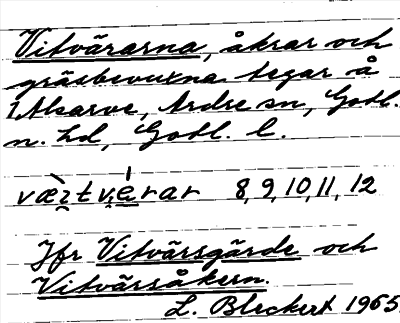 Vitvärarna, åkrar och
gräsbevuxna tegar å
1 Alsarve, Ardre sn, Gotl.
n. hd, Gotl. l.
væ̀i̯tvé̤rar 8, 9, 10, 11, 12
Jfr Vitvärsgärde och
Vitvärsåkern.
L. Bleckert 1965.